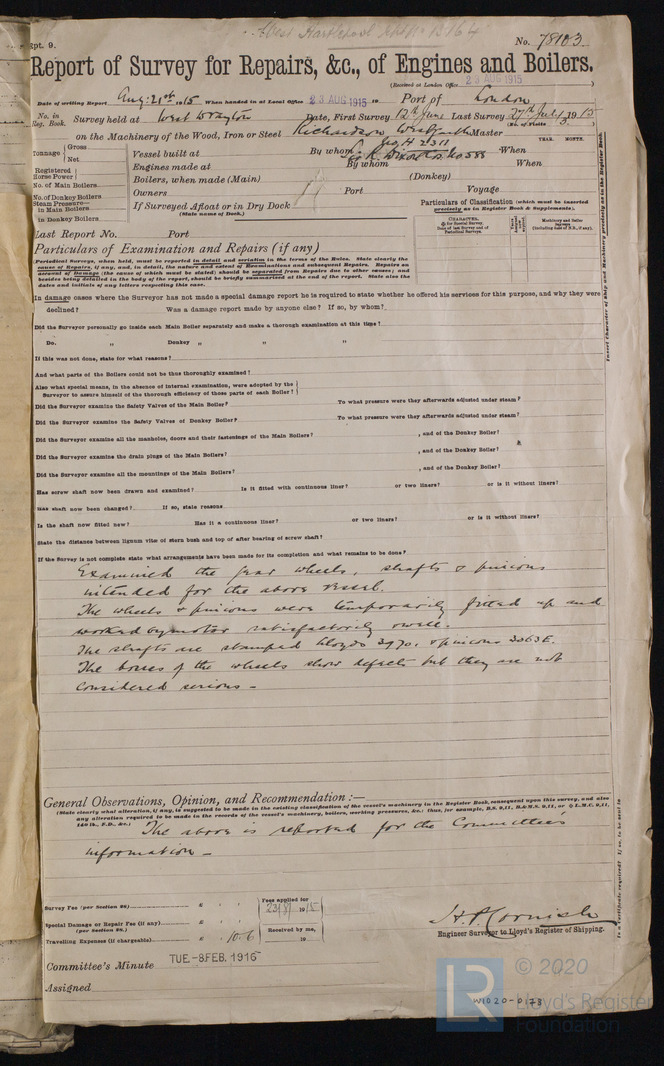 Rpt. 9.
No. 78103
Report of Survey for Repairs, &c., of Engines and Boilers.
(Received at London Office 23 AUG 1915)
Date of writing Report Aug: 21st 1915 When handed in at Local Office 23 AUG 1915 19 Port of London
No. in Reg. Book. Survey held at West Drayton Date, First Survey 12th June Last Survey 27th July 1915
(No. of Visits 3)
on the Machinery of the Wood, Iron or Steel Richardson Westgarth Master
YEAR. MONTH.
Tonnage Gross Net
Vessel built at By whom When
Engines made at By whom When
Registered Horse Power
Boilers, when made (Main) (Donkey)
No. of Main Boilers
Owners Port Voyage
No. of Donkey Boilers
Steam Pressure— in Main Boilers
in Donkey Boilers
If Surveyed Afloat or in Dry Dock
(State name of Dock.)
Particulars of Classification (which must be inserted precisely as in Register Book & Supplements).
Last Report No. Port
Particulars of Examination and Repairs (if any)
(Periodical Surveys, when held, must be reported in detail and seriatim in the terms of the Rules. State clearly the
cause of Repairs, if any, and, in detail, the nature and extent of Examinations and subsequent Repairs. Repairs on
account of Damage (the cause of which must be stated) should be separated from Repairs due to other causes; and
besides being detailed in the body of the report, should be briefly summarised at the end of the report. State also the
dates and initials of any letters respecting this case.
In damage cases where the Surveyor has not made a special damage report he is required to state whether he offered his services for this purpose, and why they were
declined? Was a damage report made by anyone else? If so, by whom?
Did the Surveyor personally go inside each Main Boiler separately and make a thorough examination at this time?
Do. „ Donkey „ „ „
If this was not done, state for what reasons?
And what parts of the Boilers could not be thus thoroughly examined?
Also what special means, in the absence of internal examination, were adopted by the
Surveyor to assure himself of the thorough efficiency of those parts of each Boiler?
Did the Surveyor examine the Safety Valves of the Main Boiler? To what pressure were they afterwards adjusted under steam?
Did the Surveyor examine the Safety Valves of Donkey Boiler? To what pressure were they afterwards adjusted under steam?
Did the Surveyor examine all the manholes, doors and their fastenings of the Main Boilers? , and of the Donkey Boiler?
Did the Surveyor examine the drain plugs of the Main Boilers? , and of the Donkey Boiler?
Did the Surveyor examine all the mountings of the Main Boilers? , and of the Donkey Boiler?
Has screw shaft now been drawn and examined? Is it fitted with continuous liner? or two liners? or is it without liners?
Has shaft now been changed? If so, state reasons
Is the shaft now fitted new? Has it a continuous liner? or two liners? or is it without liners?
State the distance between lignum vitæ of stern bush and top of after bearing of screw shaft?
If the Survey is not complete state what arrangements have been made for its completion and what remains to be done?
Examined the gear wheels, shafts & pinions
intended for the above vessel.
The wheels & pinions were temporarily fitted up and
worked by motor satisfactorily
The shafts are stamped Lloyds 3970. & pinions 3063E.
The bosses of the wheels show defects but they are not
considered serious —
General Observations, Opinion, and Recommendation :—
(State clearly what alteration, if any, is suggested to be made in the existing classification of the vessel's machinery in the Register Book, consequent upon this survey, and also
any alteration required to be made in the records of the vessel's machinery, boilers, working pressures, &c.: thus, for example, B.S. 9,11, B.&M.S. 9,11, or L.M.C. 9,11,
140 lb., F.D., &c.)
The above is reported for the Committee's
information —
Survey Fee (per Section 28) £
Fees applied for 23/8/ 1915
Special Damage or Repair Fee (if any) £
(per Section 28.)
Received by me,
19
Travelling Expenses (if chargeable) £ 10.6
H. P. Cornish
Engineer Surveyor to Lloyd's Register of Shipping.
Committee's Minute TUE-8 FEB. 1916
Assigned
W1020-0178
LR
© 2020
Lloyd's Register
Foundation